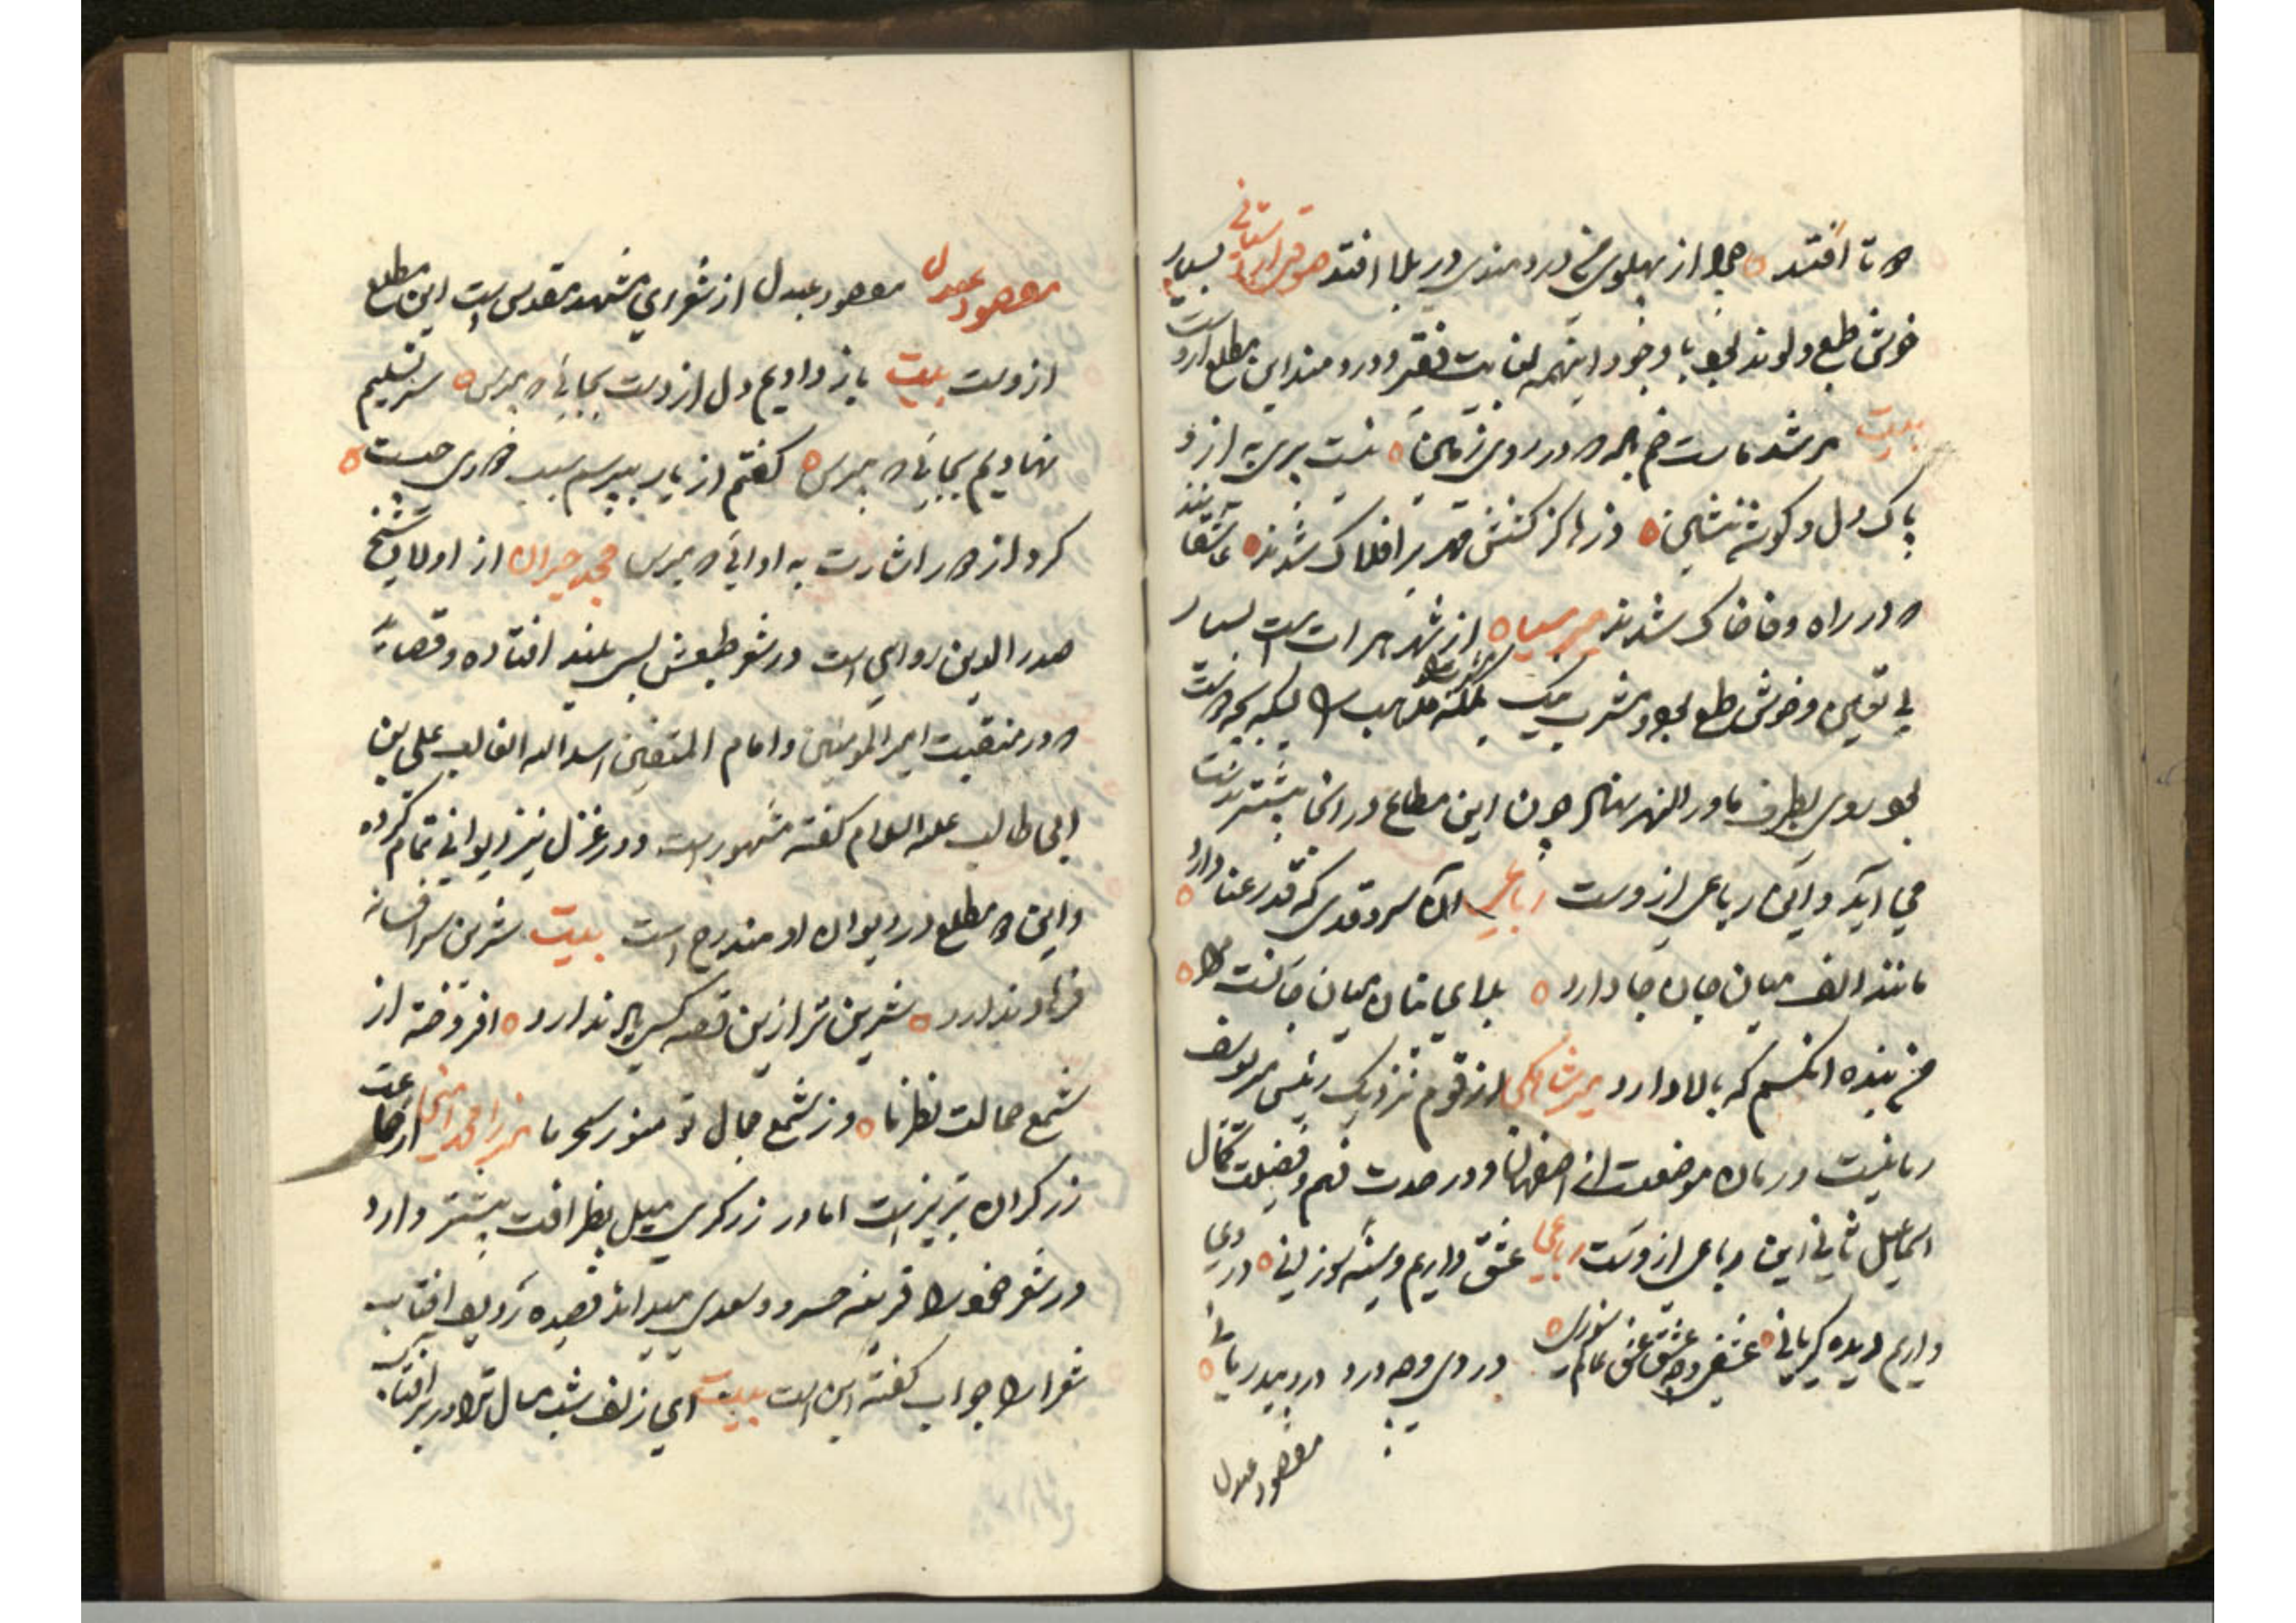 که تا افتد ه چرا از پهلوی من دردمندی در بلا افتد صوفی اردستانی بسیار
خوش طبع و لوند بود با وجود اینهمه بغایت فقیر و دردمند این مطلع ازوست
بیت مرشد ماست خم که در روی زمین ه نیست پیری به ازو
پاک دل و گوشه نشین ه
که در راه وفا خاک شدند میر سیاه از شهر هرات است بسیار
بی تعین و خوش طبع بود و مشرب
بود روی بطرف ماورالنهر نهاد چون این متاع در انجا بیشتر
می اید و این رباعی ازوست رباعی ان سرو قدی که قد رعنا دارد ه
مانند الف میان جان جا دارد ه بلای جان میان جانست مرا ه
من بنده انکسم که بالا دارد از قوم نزدیک رئیس میر یوسف
رمانیست و رمان موضعست از اصفهان و در حدت فهم و فضیلت کمال
اسماعیل ثانی این رباعی ازوست رباعی عشقی داریم و سینه سوزانی ه دردی
داریم و دیده گریانی ه عشقی و چه عشق عشق عالم سوزی ه دردی و چه درد درد بیدرمانی ه
مقصود عبدل
مقصود عبدل مقصود عبدل از شعرای مشهد مقدس است این مطلع
ازوست بیت باز دادیم دل از دست بجائی که مپرس ه سر تسلیم
نهادیم بجائی که مپرس ه گفتم از یار بپرسم سبب خواری چیست ه
کرد از اشارت به ادائی که مپرس محمد حیران از اولاد شیخ
صدر الدین رواسی است در شعر طبعش بس بلند افتاده و قصائد
که در منقبت امیر المومنین و امام المتقین اسد الله الغالب علی بن
ابی طالب علیه السلام گفته مشهور است و در غزل نیز دیوانی تمام کرده
و این مطلع در دیوان او مندرج است بیت شرین سر افسانه
فرهاد ندارد ه شرین تر ازین قصه کسی یاد ندارد ه افروخته از
شمع جمالت نظر ما ه وز شمع جمال تو منور سحر ما از جماعت
زرگران تبریز است اما در زرگری میل بظرافت بیشتر دارد
در شعر خود را قرینه خسرو و سعدی میداند قصیده ردیف افتاب
شعرا را جواب گفته این است بیت ای زلف شب مثال ترا در بر افتاب